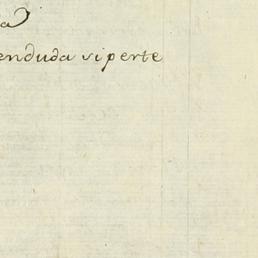 a
enduda siperte